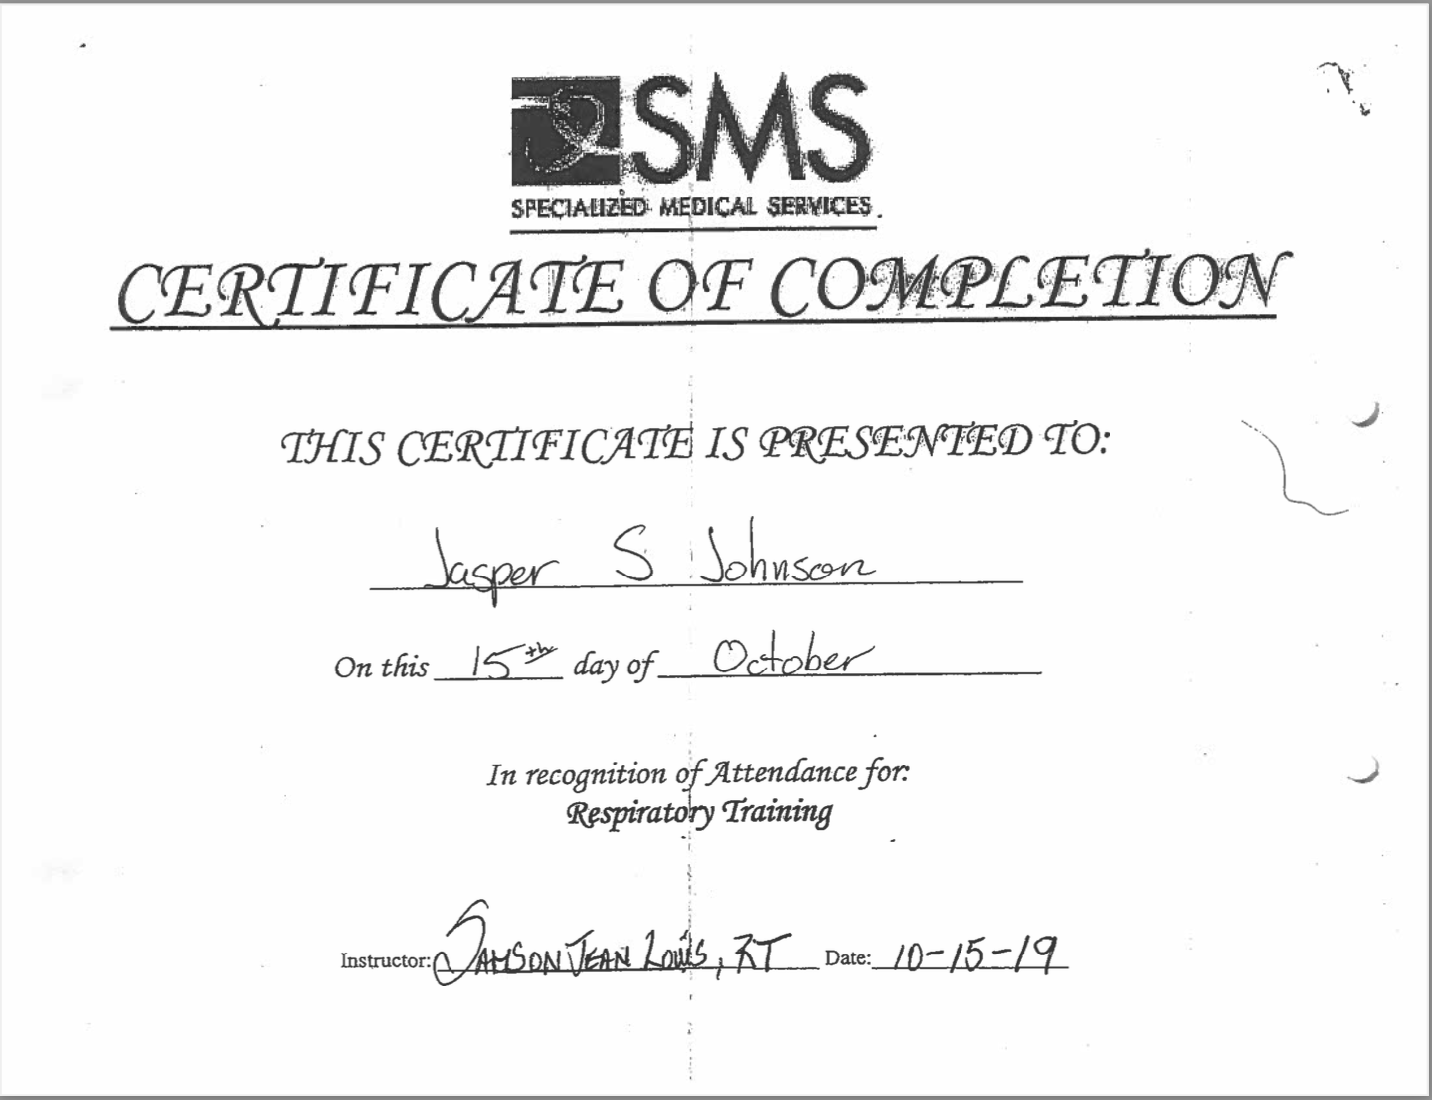 SMS
SPECIALIZED MEDICAL SERVICES
CERTIFICATE OF COMPLETION
THIS CERTIFICATE IS PRESENTED TO:
Jasper S Johnson
On this 15th day of October
In recognition of Attendance for:
Respiratory Training
Instructor: SAMSON JEAN LOUIS, RT Date: 10-15-19